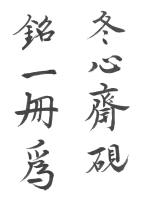 冬心齋硯
銘一冊爲